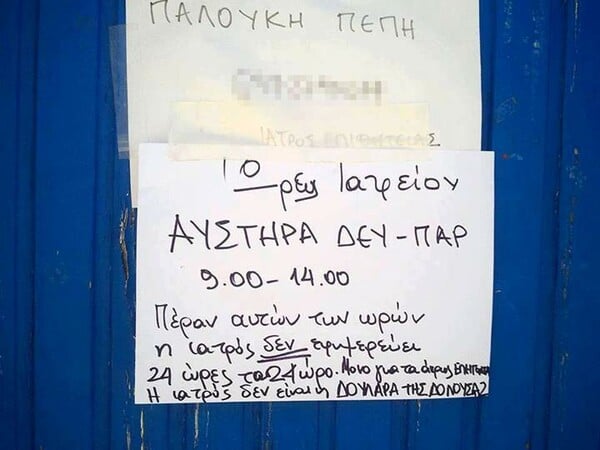 ΠΑΛΟΥΚΗ ΠΕΠΗ
ΙΑΤΡΟΣ
Ώρες Ιατρείου
ΑΥΣΤΗΡΑ ΔΕΥ-ΠΑΡ
9.00-14.00
Πέραν αυτών των ωρών
η ιατρός δεν εφημερεύει
24 ώρες το 24ωρο. Μονο για τα
Η ιατρός δεν είναι η ΔΟΥΛΑΡΑ ΤΗΣ ΔΟΝΟΥΣΑΣ